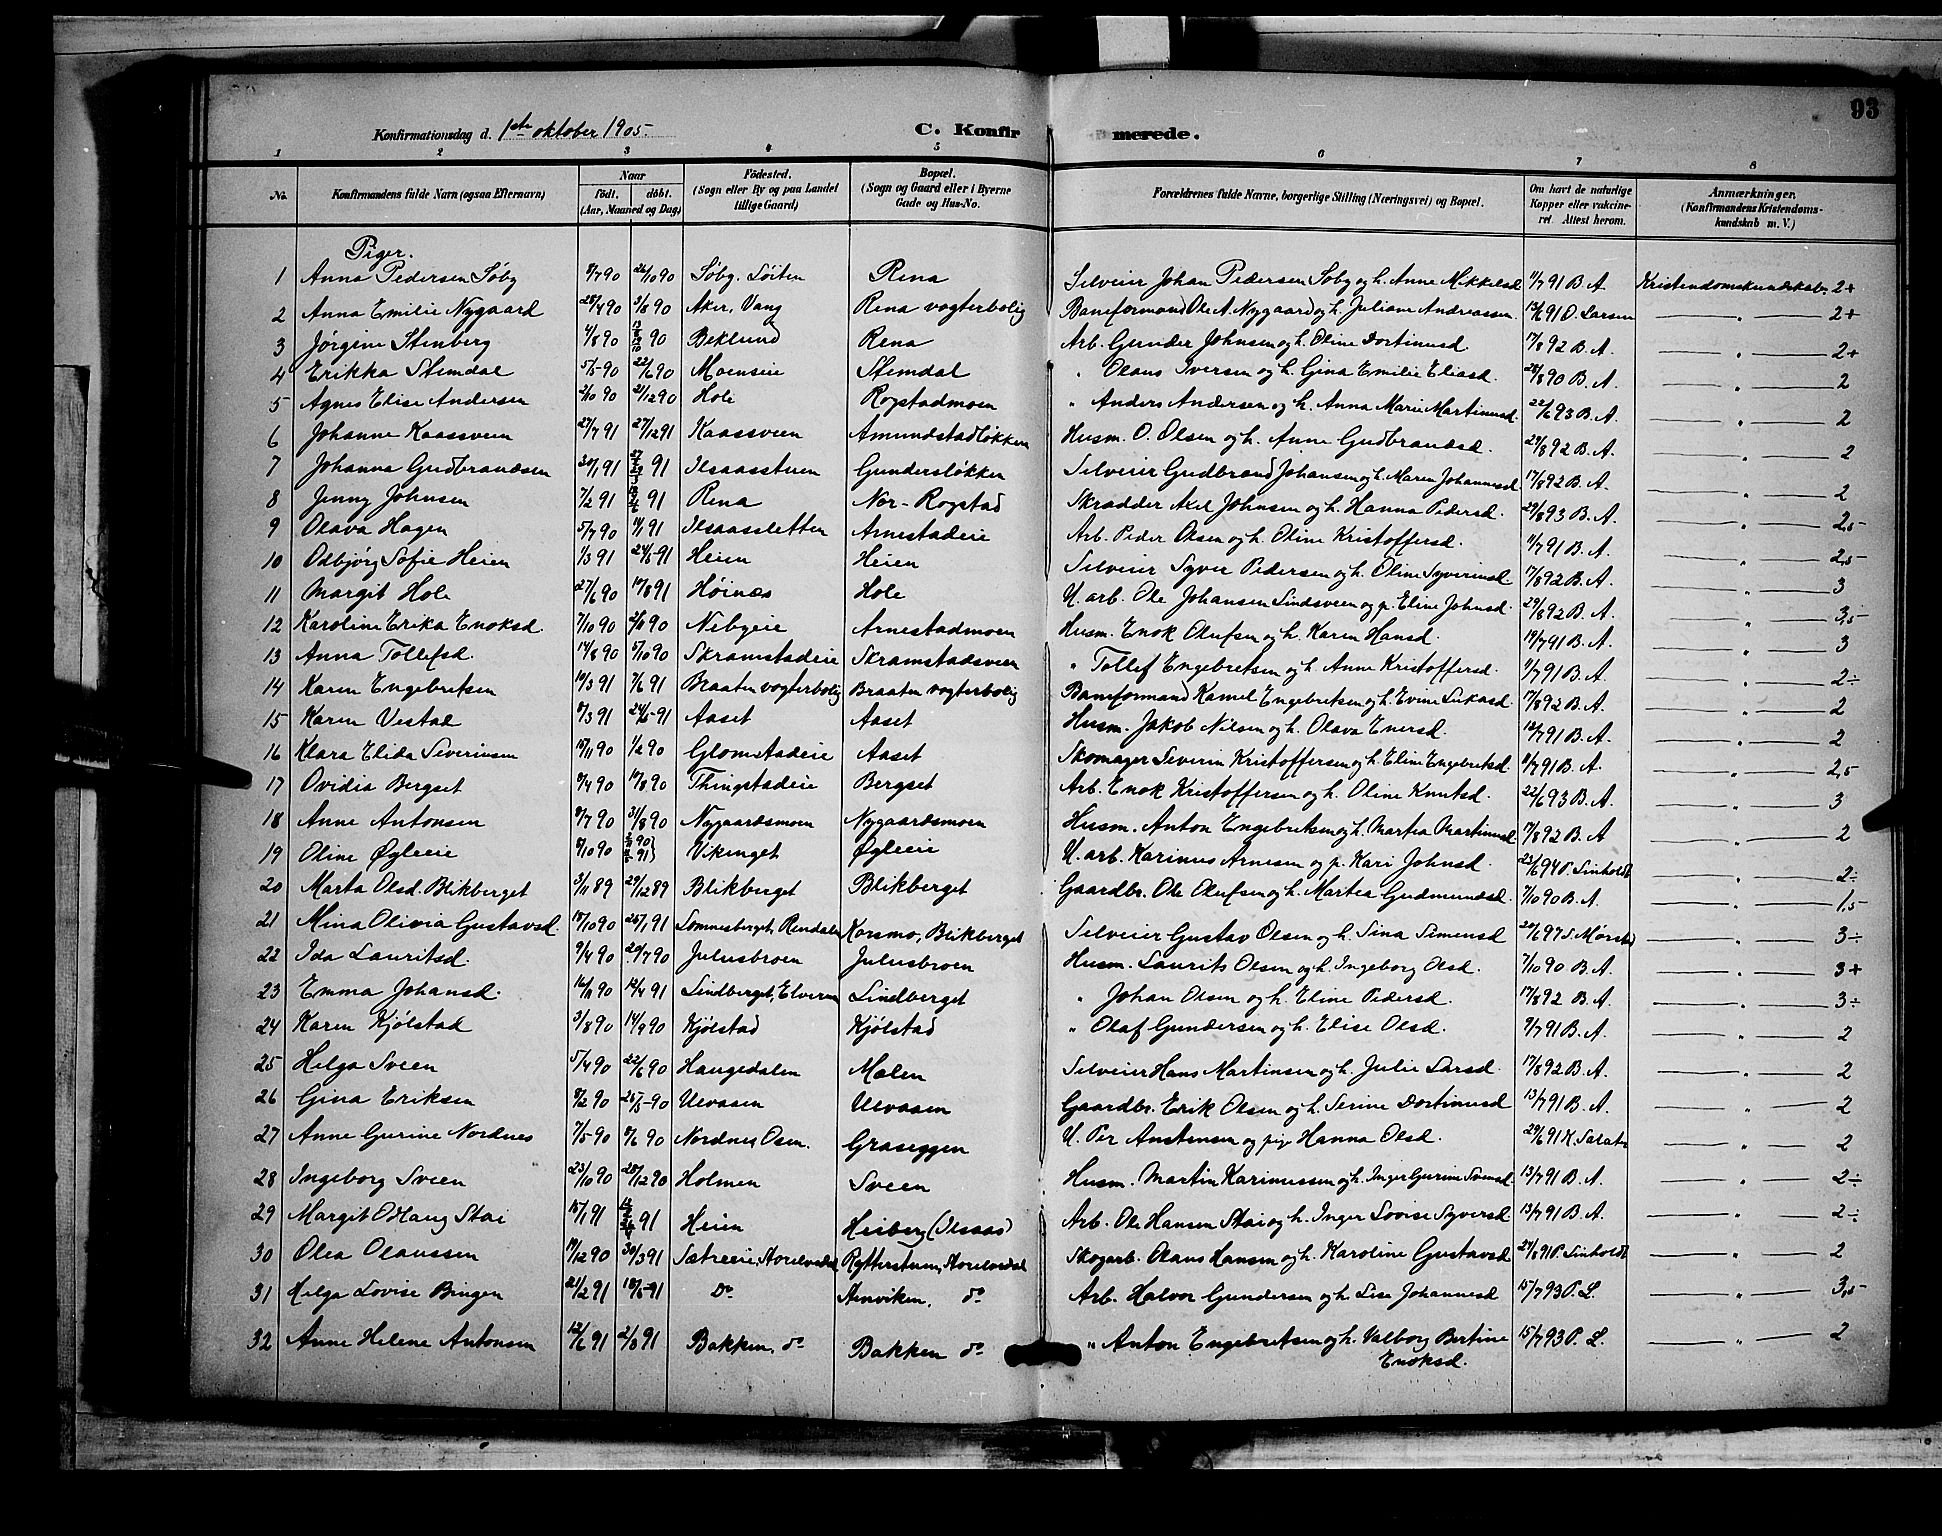 93
Konfirmationsdag d. 1ste oktober 1905.
C. Konfirmerede.
1 2 3 4 5 6 7 8
No. Konfirmandens fulde Navn (ogsaa Efternavn) Naar født. døbt. (Aar, Maaned og Dag) Fødested. (Sogn eller By og paa Landet tillige Gaard) Bopæl. (Sogn og Gaard eller i Byerne Gade og Hus-No. Forældrenes fulde Navne, borgerlige Stilling (Næringsvei) og Bopæl. Om havt de naturlige Kopper eller vakcineret. Attest herom. Anmærkninger. (Konfirmandens Kristendomskundskab m. V.)
Piger.
1 Anna Pedersen Søby 8/7 90 26/10 90 Søbg. Løiten Rena Selveier Johan Pedersen Søby og h. Anne Mikkelsd 11/7 91 B. A. Kristendomskundskab. 2+
2 Anna Emilie Nygaard 28/4 90 3/8 90 Aker, Vang Rena vogterbolig Baneformand Ole A. Nygaard og h. Juliane Andreassen 13/6 91 O. Larsen — " — 2+
3 Jørgine Stenberg 4/8 90 90 Beklund Rena Arb. Gunder Johnsen og h. Oline Dortinusd. 17/8 92 B. A. — " — 2+
4 Erikka Stemdal 5/5 90 22/6 90 Moenseie Stemdal " Olaus Iversen og h. Gina Emilie Eliasd. 28/8 90 B. A. — " — 2
5 Agnes Elise Andersen 2/10 90 21/12 90 Hole Rogstadmoen " Anders Andersen og h. Anna Marie Martinusd. 22/6 93 B. A. — " — 2
6 Johanne Kaassveen 27/7 91 27/12 91 Kaassveen Amundstadløkken Husm. O. Olsen og h. Anne Gudbrandsd. 29/8 92 B. A. — " — 2
7 Johanna Gudbrandsen 30/1 91 91 Ilsaasstuen Gundersløkken Selveier Gudbrand Johansen og h. Maren Johannesd. 17/8 92 B. A. — " — 2
8 Jenny Johnsen 7/2 91 91 Rena Nor-Rogstad Skrædder Axel Johnsen og h. Hanna Pedersd. 29/8 93 B. A. — " — 2,5
9 Olava Hagen 5/7 90 11/1 91 Ilsaassletten Arnestadeie Arb. Peder Olsen og h. Oline Kristoffersd. 11/7 91 B. A. — " — 2,5
10 Odbjørg Sofie Heien 1/3 91 24/5 91 Heien Heien Selveier Syver Pedersen og h. Oline Syverinsd. 17/8 92 B. A. — " — 3
11 Margit Hole 27/6 90 17/8 91 Høinæs Hole U. arb. Ole Johansen Lindsveen og p. Eline Johnsd. 29/8 92 B. A. — " — 3,5
12 Karoline Erika Enoksd. 7/10 90 90 Nebyeie Arnestadmoen Husm. Enok Olufsen og h. Karen Hansd. 19/7 91 B. A. — " — 3
13 Anna Tollefsd. 14/8 90 5/10 90 Skramstadeie Skramstadsveen " Tollef Engebretsen og h. Anne Kristoffersd. 9/7 91 B. A. — " — 2÷
14 Karen Engebretsen 14/3 91 7/6 91 Braaten vogterbolig Braaten vogterbolig Baneformand Kamel Engebretsen og h. Evine Lukasd. 17/8 92 B. A. — " — 2
15 Karen Vestad 8/3 91 24/5 91 Aaset Aaset Husm. Jakob Nilsen og h. Olava Enersd. 12/7 91 B. A. — " — 2
16 Klara Elida Severinsen 15/11 90 1/2 90 Glomstadeie Aaset Skomager Severin Kristoffersen og h. Eline Engebretsd. 8/7 91 B. A. — " — 2,5
17 Ovidia Bergset 8/4 90 17/8 90 Thingstadeie Bergset Arb. Enok Kristoffersen og h. Oline Knutsd. 22/6 93 B. A. — " — 3
18 Anne Antonsen 8/7 90 31/8 90 Nygaardsmoen Nygaardsmoen Husm. Anton Engebretsen og h. Martea Martinusd. 17/8 92 B. A — " — 2
19 Oline Øgleeie 8/10 90 90 91 Vikenget Øgleeie U. arb. Karinus Arnesen og p. Kari Johnsd. 23/6 94 P. Linholdt — " — 2÷
20 Marta Olsd. Blikberget 3/11 89 29/12 89 Blikberget Blikberget Gaardbr. Ole Olufsen og h. Martea Gudmundsd. 7/10 90 B. A. — " — 1,5
21 Mina Olivia Gustavsd. 18/10 90 26/1 91 Lomnesberget, Rendalen Korsmo, Blikberget Selveier Gustav Olsen og h. Sina Simensd 20/6 97 S. Mørsta — " — 3÷
22 Ida Lauritsd. 9/4 90 20/7 90 Julusbroen Julusbroen Husm. Laurits Olsen og h. Ingeborg Olsd. 7/10 90 B. A. — " — 3+
23 Emma Johansd. 16/11 90 12/4 91 Lindberget, Elverum Lindberget " Johan Olsen og h. Eline Pedersd. 17/8 92 B. A. — " — 3÷
24 Karen Kjølstad 3/8 90 14/9 90 Kjølstad Kjølstad " Olaf Gundersen og h. Elise Olsd. 9/7 91 B. A. — " — 2
25 Helga Sveen 5/4 90 22/6 90 Haugedalen Mælen Selveier Hans Martinsen og h. Julie Larsd. 17/8 92 B. A. — " — 2
26 Gina Eriksen 8/2 90 26/5 90 Ulvaaen Ulvaaen Gaardbr. Erik Olsen og h. Serine Dortinusd 13/7 91 B. A. — " — 2
27 Anne Gurine Nordnes 7/5 90 8/6 90 Nordnes, Osen. Graseggen U. Per Anstensen og pige Hanna Olsd. 29/6 91 — " — 2
28 Ingeborg Sveen 23/10 90 28/12 90 Holmen Sveen Husm. Martin Karinussen og h. Inger Gurine Svensd. 13/7 91 B. A. — " — 2÷
29 Margit O. Haug Stai 15/1 91 91 Heien Heiberg (Ilsaas) Arb. Ole Hansen Stai og h. Inger Lovise Syversd 13/7 91 B. A. — " — 2÷
30 Olea Olaussen 17/12 90 30/3 91 Sætreeie, Storelvedal Rytterstuen, Storelvedal Skogarb. Olaus Hansen og h. Karoline Gustavsd. 24/8 91 P. Linholdt — " — 2
31 Helga Lovise Bingen 21/2 91 18/5 91 Do Stenviken. do Arb. Halvor Gundersen og h. Lise Johannesd 15/7 93 P. L. — " — 3,5
32 Anne Helene Antonsen 12/6 91 2/8 91 Bakken, do Bakken do " Anton Engebretsen og h. Valborg Bertine Enoksd. 15/7 93 P. L. — " — 2